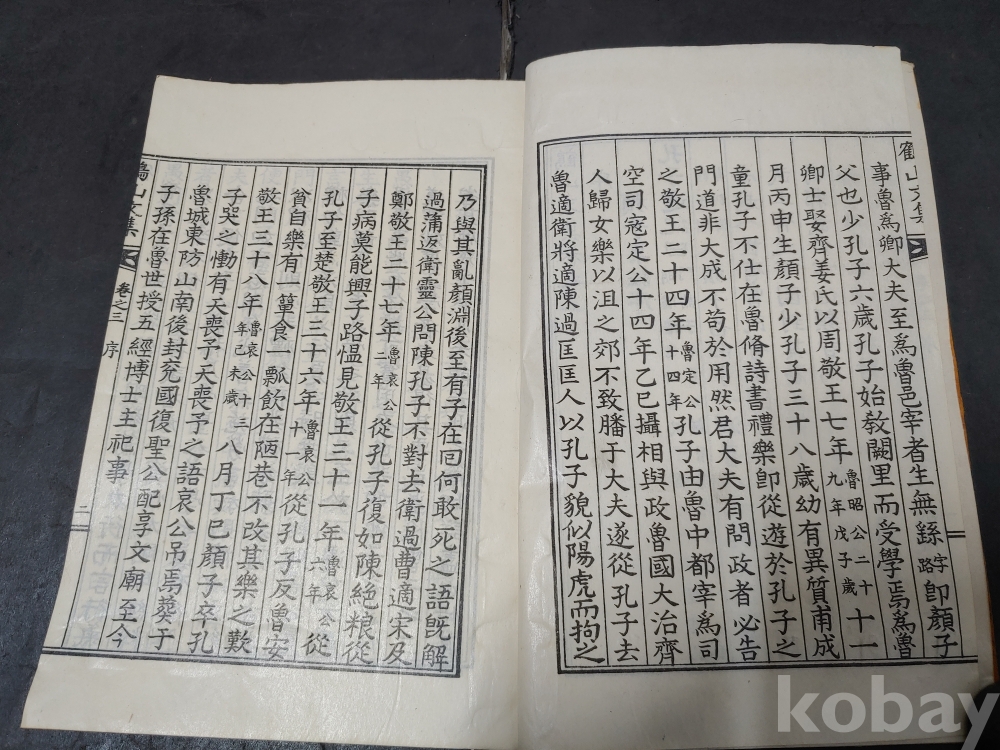 事魯爲卿大夫至爲魯邑宰者生無繇字路卽顔子
父也少孔子六歲孔子始敎闕里而受學焉爲魯
卿士娶齊姜氏以周敬王七年魯昭公二十九年戊子歲十一
月丙申生顔子少孔子三十八歲幼有異質甫成
童孔子不仕在魯脩詩書禮樂卽從遊於孔子之
門道非大成不苟於用然君大夫有問政者必告
之敬王二十四年魯定公十四年孔子由魯中都宰爲司
空司寇定公十四年乙巳攝相與政魯國大治齊
人歸女樂以沮之郊不致膰于大夫遂從孔子去
魯適衛將適陳過匡匡人以孔子貌似陽虎而拘之
乃與其亂顔淵後至有子在回何敢死之語旣解
過蒲返衛靈公問陳孔子不對去衛過曹適宋及
鄭敬王二十七年魯哀公二年從孔子復如陳絕粮從
子病莫能興子路慍見敬王三十一年魯哀公六年從
孔子至楚敬王三十六年魯哀公十一年從孔子反魯安
貧自樂有一簞食一瓢飮在陋巷不改其樂之歎
敬王三十八年魯哀公十三年己未歲八月丁巳顔子卒孔
子哭之慟有天喪予天喪予之語哀公吊焉葬于
魯城東防山南後封兗國復聖公配享文廟至今
子孫在魯世授五經博士主祀事
山文集
卷之三
序
二
kobay